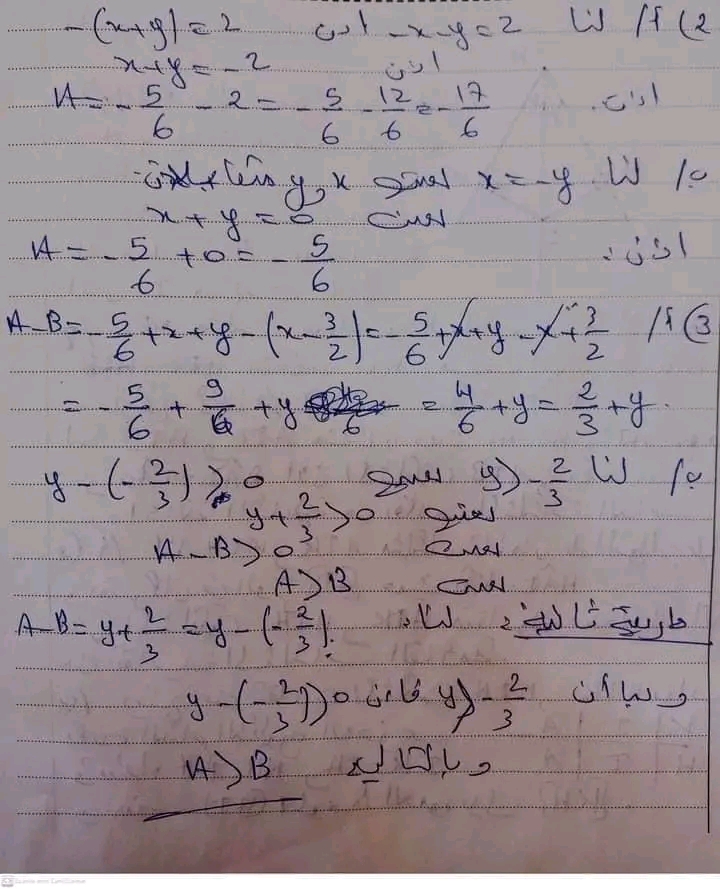 2) أ/ لنا -x-y=2 اذن -(x+y)=2
اذن x+y=-2
اذن: A = -5/6 - 2 = -5/6 - 12/6 = -17/6
ب/ لنا x=-y يعني x و y متقابلان
يعني x+y=0
اذن: A = -5/6 + 0 = -5/6
3) أ/ A-B = -5/6 + x + y - (x - 3/2) = -5/6 + x + y - x + 3/2
= -5/6 + 9/6 + y = 4/6 + y = 2/3 + y.
ب/ لنا y > -2/3 يعني y - (-2/3) > 0
يعني y + 2/3 > 0
يعني A-B > 0
يعني A > B
طريقة ثانية: لنا: A-B = y + 2/3 = y - (-2/3)
وبما أن y > -2/3 فإن y - (-2/3) > 0
وبالتالي A > B